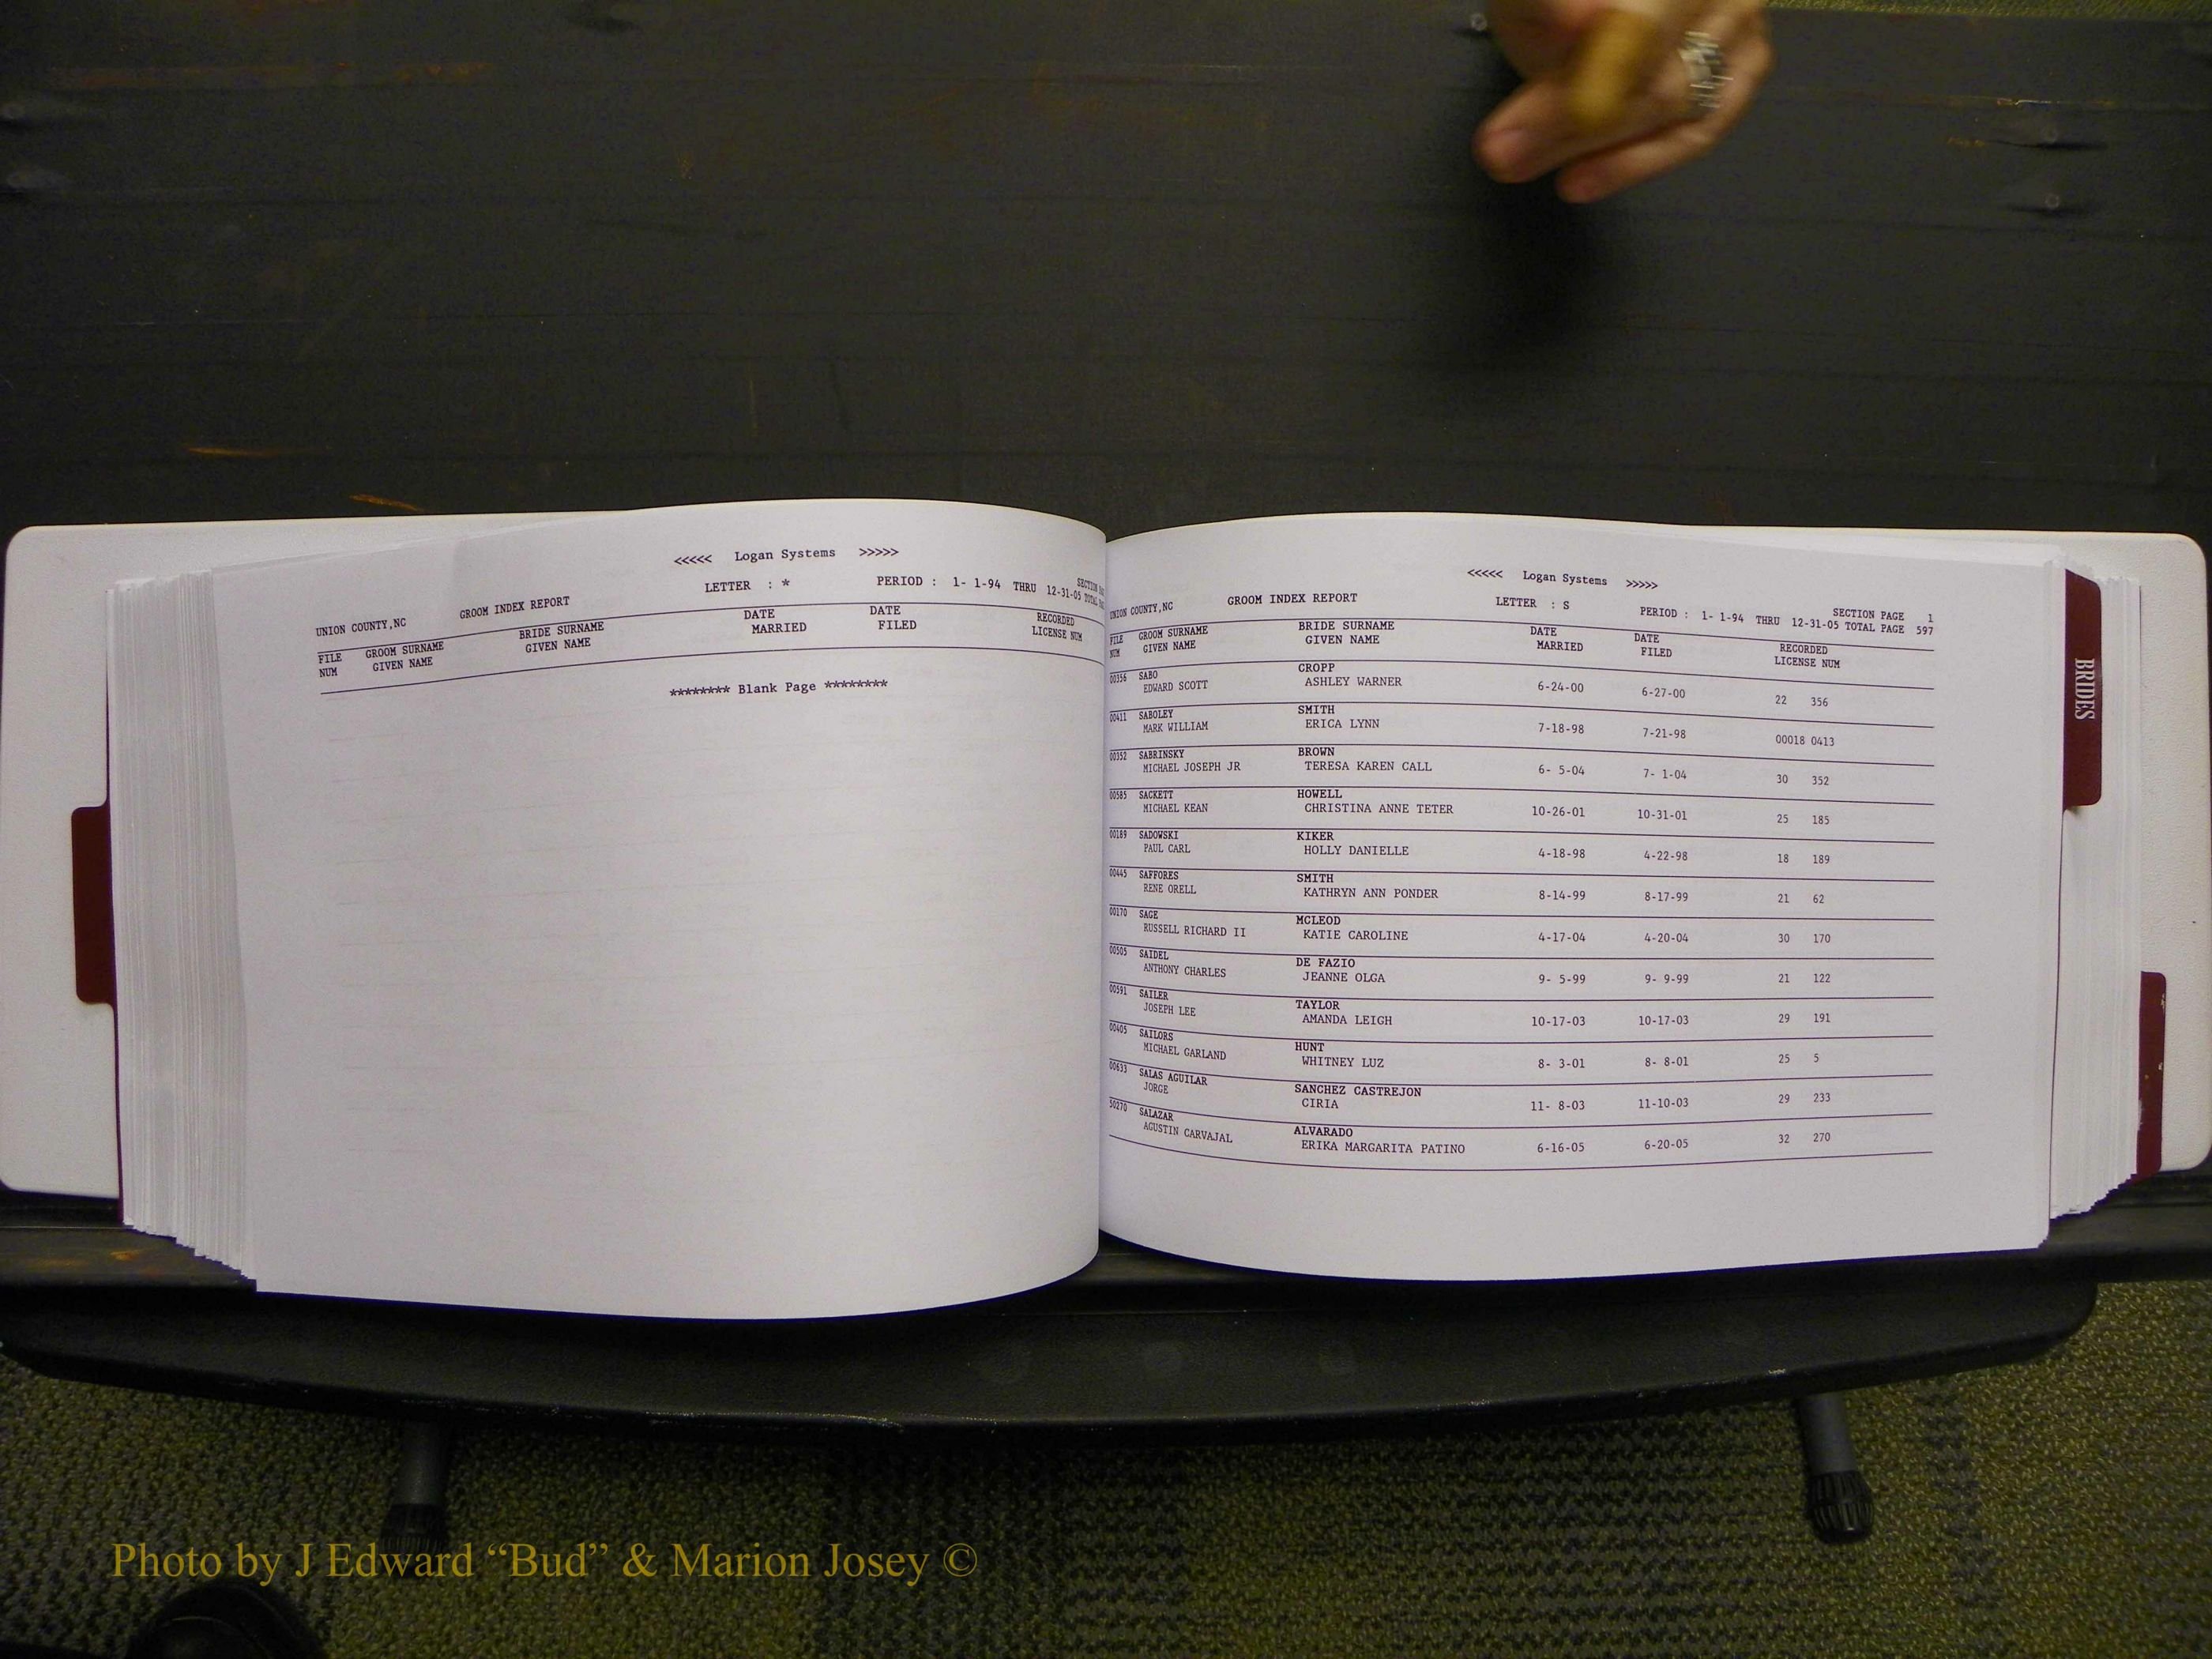 <<<<< Logan Systems >>>>>
UNION COUNTY,NC GROOM INDEX REPORT LETTER : * PERIOD : 1- 1-94 THRU 12-31-05 TOTAL
FILE GROOM SURNAME BRIDE SURNAME DATE DATE RECORDED
NUM GIVEN NAME GIVEN NAME MARRIED FILED LICENSE NUM
******** Blank Page ********
<<<<< Logan Systems >>>>>
SECTION PAGE 1
UNION COUNTY,NC GROOM INDEX REPORT LETTER : S PERIOD : 1- 1-94 THRU 12-31-05 TOTAL PAGE 597
FILE GROOM SURNAME BRIDE SURNAME DATE DATE RECORDED
NUM GIVEN NAME GIVEN NAME MARRIED FILED LICENSE NUM
00356 SABO CROPP
EDWARD SCOTT ASHLEY WARNER 6-24-00 6-27-00 22 356
00411 SABOLEY SMITH
MARK WILLIAM ERICA LYNN 7-18-98 7-21-98 00018 0413
00352 SABRINSKY BROWN
MICHAEL JOSEPH JR TERESA KAREN CALL 6- 5-04 7- 1-04 30 352
00585 SACKETT HOWELL
MICHAEL KEAN CHRISTINA ANNE TETER 10-26-01 10-31-01 25 185
00189 SADOWSKI KIKER
PAUL CARL HOLLY DANIELLE 4-18-98 4-22-98 18 189
00445 SAFFORES SMITH
RENE ORELL KATHRYN ANN PONDER 8-14-99 8-17-99 21 62
00170 SAGE MCLEOD
RUSSELL RICHARD II KATIE CAROLINE 4-17-04 4-20-04 30 170
00505 SAIDEL DE FAZIO
ANTHONY CHARLES JEANNE OLGA 9- 5-99 9- 9-99 21 122
00591 SAILER TAYLOR
JOSEPH LEE AMANDA LEIGH 10-17-03 10-17-03 29 191
00405 SAILORS HUNT
MICHAEL GARLAND WHITNEY LUZ 8- 3-01 8- 8-01 25 5
00633 SALAS AGUILAR SANCHEZ CASTREJON
JORGE CIRIA 11- 8-03 11-10-03 29 233
50270 SALAZAR ALVARADO
AGUSTIN CARVAJAL ERIKA MARGARITA PATINO 6-16-05 6-20-05 32 270
BRIDES
Photo by J Edward “Bud” & Marion Josey ©